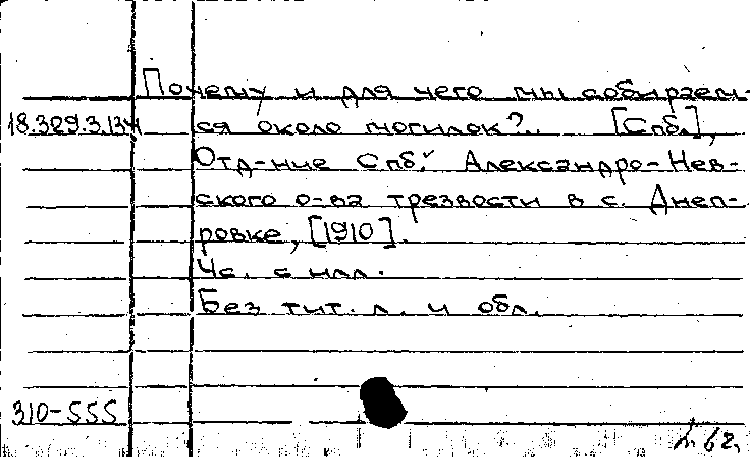 Почему и для чего мы собираем-
18.329.3.134 ся около могилок?.. [Спб.],
Отд-ние Спб. Александро-Нев-
ского о-ва трезвости в с. Днеп-
ровке, [1910].
4 с. с илл.
Без тит. л. и обл.
310-555